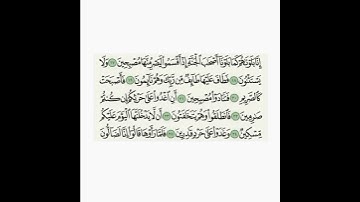 إِنَّا بَلَوْنَاهُمْ كَمَا بَلَوْنَا أَصْحَابَ الْجَنَّةِ إِذْ أَقْسَمُوا لَيَصْرِمُنَّهَا مُصْبِحِينَ ﴿١٧﴾ وَلَا
يَسْتَثْنُونَ ﴿١٨﴾ فَطَافَ عَلَيْهَا طَائِفٌ مِّن رَّبِّكَ وَهُمْ نَائِمُونَ ﴿١٩﴾ فَأَصْبَحَتْ
كَالصَّرِيمِ ﴿٢٠﴾ فَتَنَادَوْا مُصْبِحِينَ ﴿٢١﴾ أَنِ اغْدُوا عَلَىٰ حَرْثِكُمْ إِن كُنتُمْ
صَارِمِينَ ﴿٢٢﴾ فَانطَلَقُوا وَهُمْ يَتَخَافَتُونَ ﴿٢٣﴾ أَن لَّا يَدْخُلَنَّهَا الْيَوْمَ عَلَيْكُم
مِّسْكِينٌ ﴿٢٤﴾ وَغَدَوْا عَلَىٰ حَرْدٍ قَادِرِينَ ﴿٢٥﴾ فَلَمَّا رَأَوْهَا قَالُوا إِنَّا لَضَالُّونَ